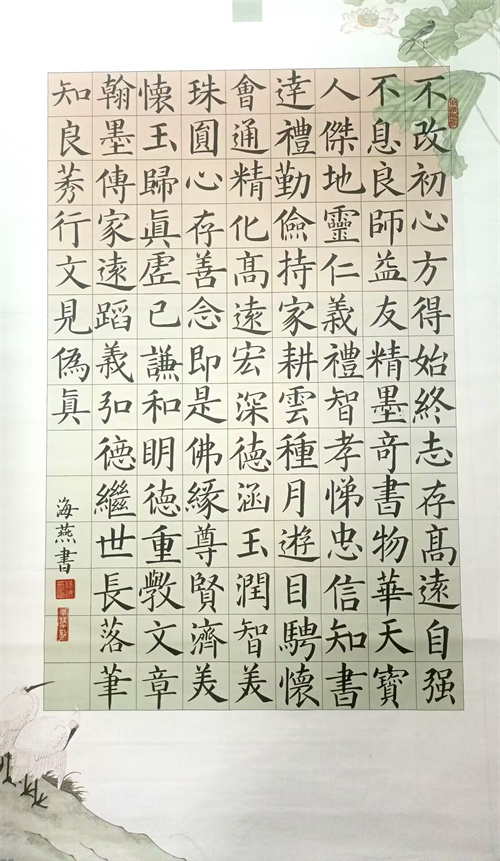 不改初心方得始終志存高遠自强
不息良師益友精墨奇書物華天寶
人傑地靈仁義禮智孝悌忠信知書
達禮勤儉持家耕雲種月遊目騁懷
會通精化高遠宏深德涵玉潤智美
珠圓心存善念即是佛緣尊賢濟美
懷玉歸真虛己謙和明德重教文章
翰墨傳家遠蹈義弘德繼世長落筆
知良莠行文見偽真
海燕書